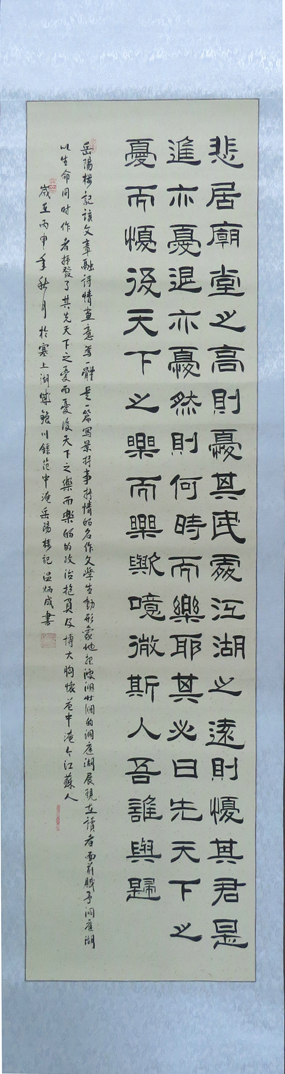 悲居廟堂之高則憂其民處江湖之遠則憂其君是
進亦憂退亦憂然則何時而樂耶其必曰先天下之
憂而憂後天下之樂而樂歟噫微斯人吾誰與歸
岳陽樓記該文章融詩情畫意為一體是一篇寫景抒事抒情的名作文學生動形象地把波瀾壯闊的洞庭湖展現在讀者面前賦予洞庭湖
以生命同時作者抒發了其先天下之憂而憂後天下之樂而樂的的政治抱負與博大胸懷范中淹今江蘇人
歲在丙申年秋月於塞上湖城銀川錄范中淹岳陽樓記温炳成書